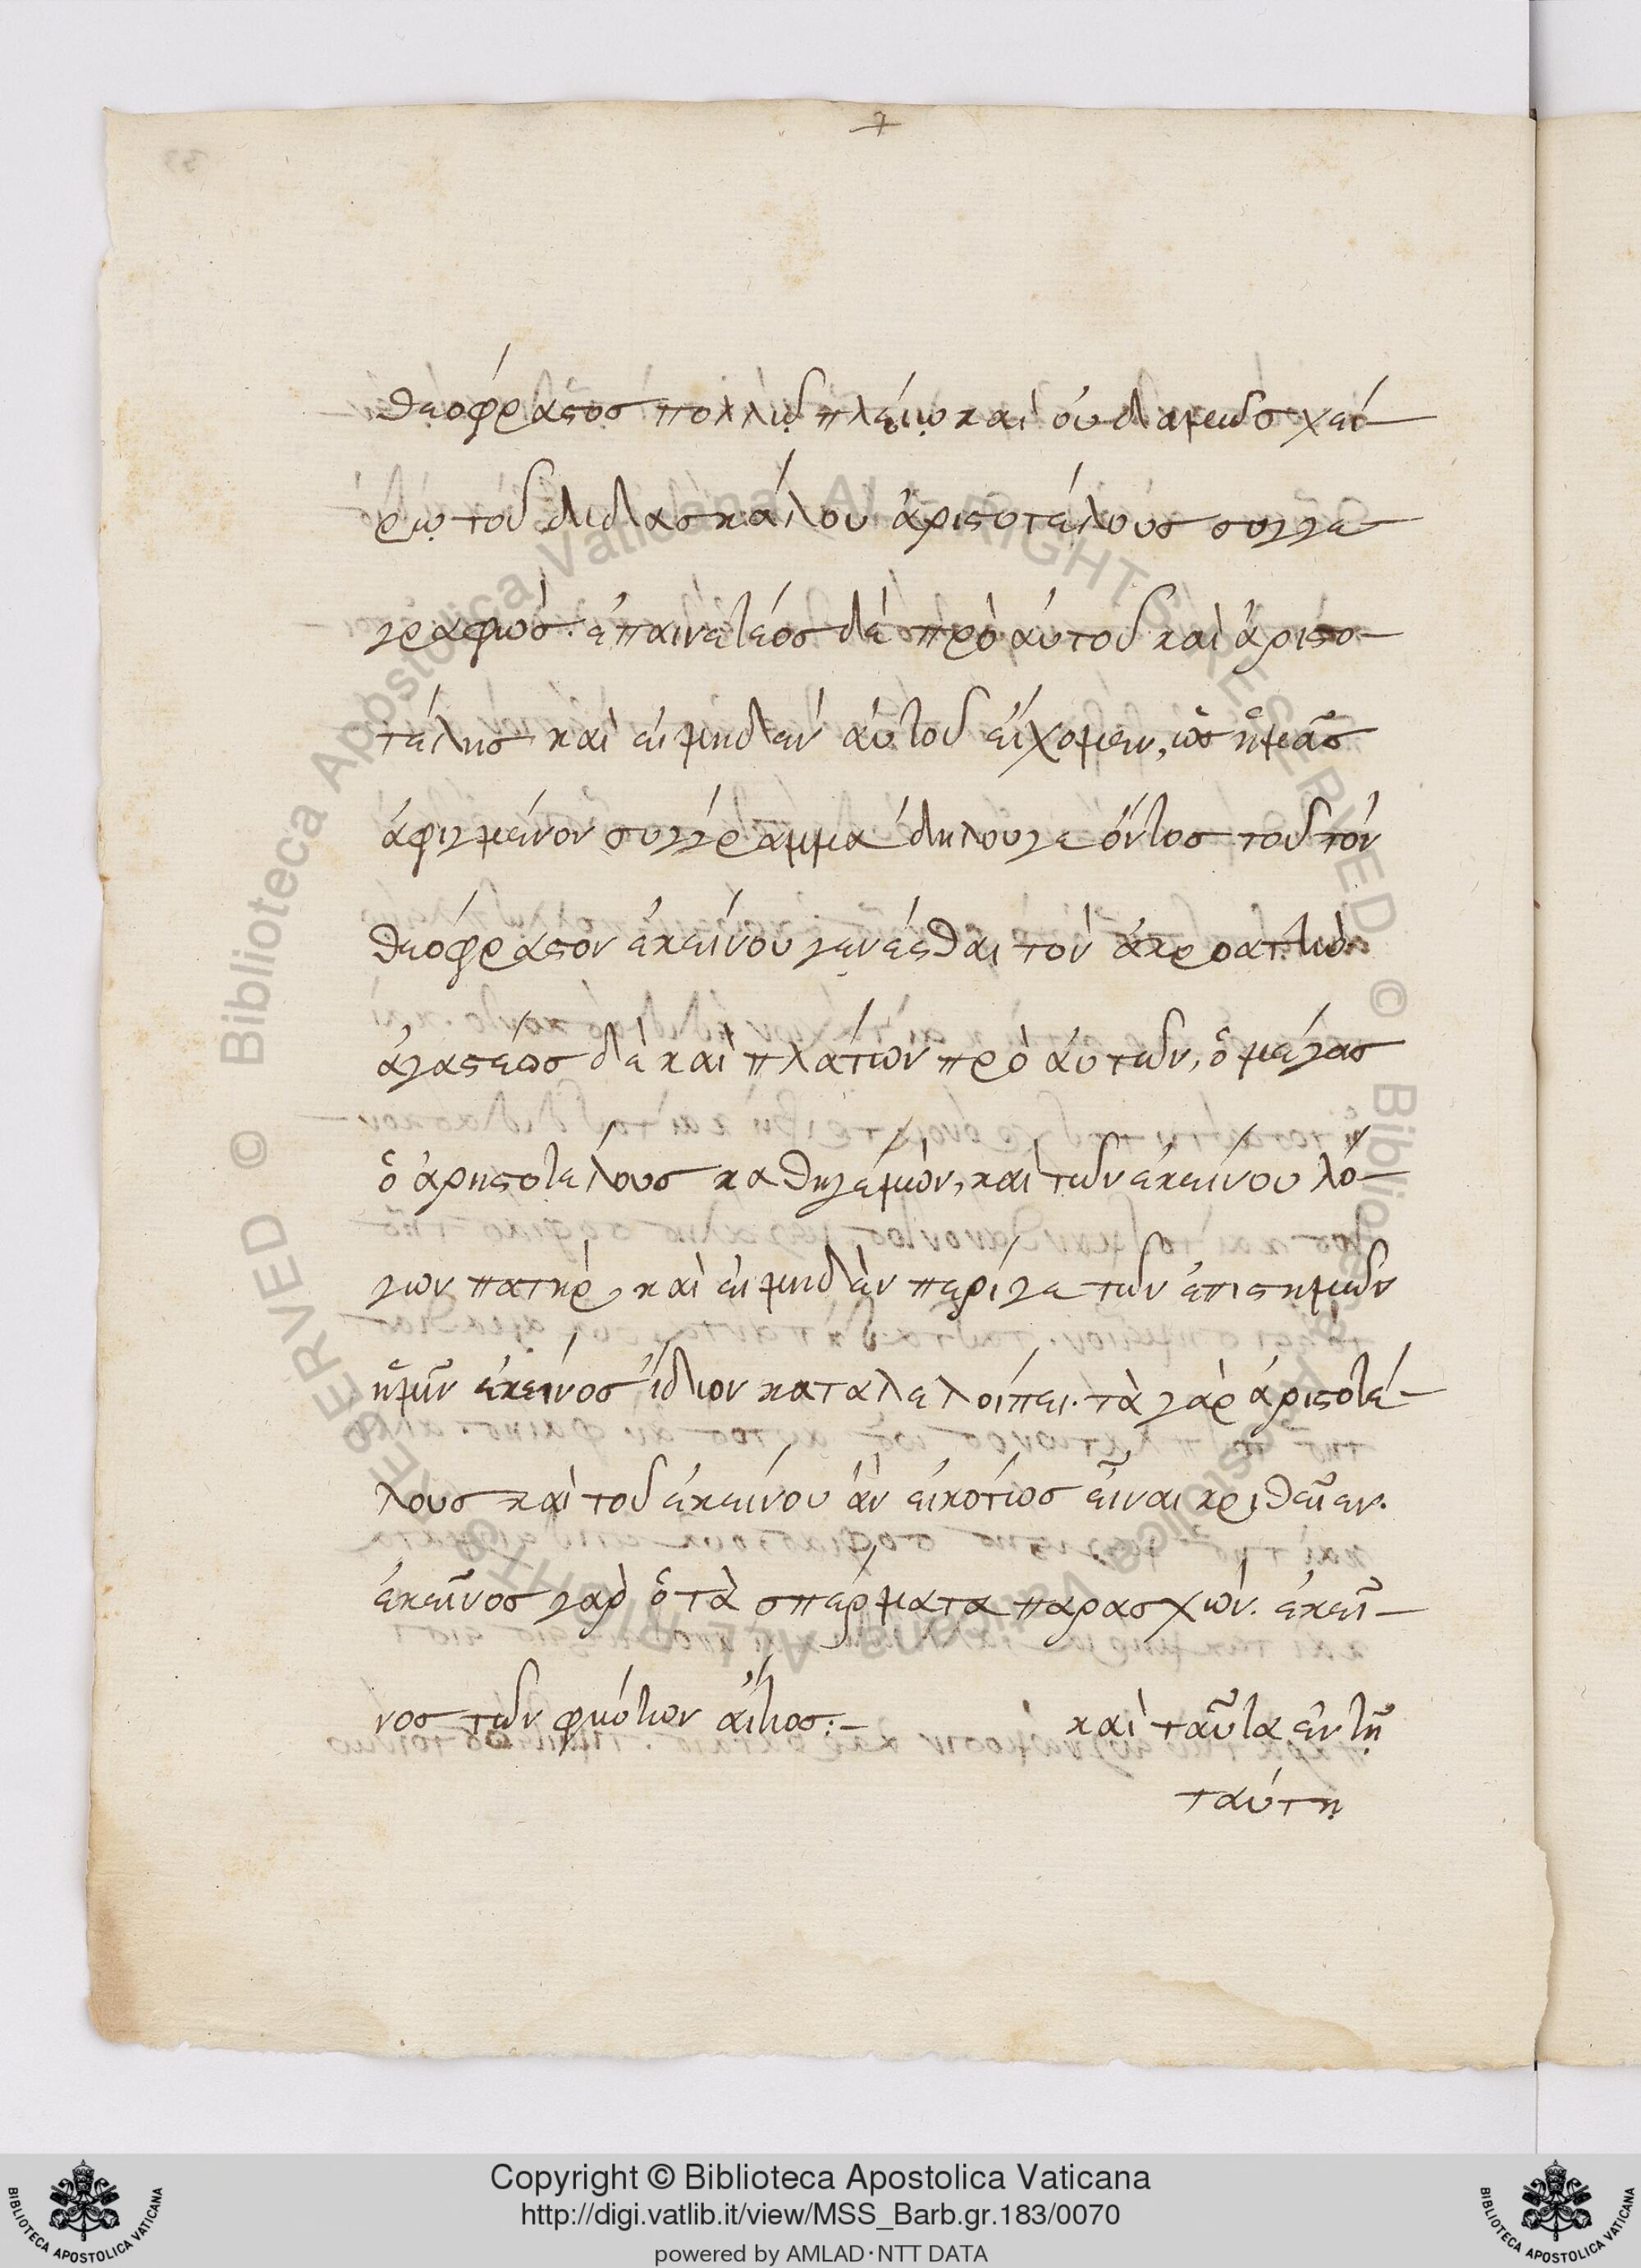 θεόφραστος πολλῷ πλείω καὶ οὐδαμῶς χεί-
ρω τοῦ διδασκάλου ἀριστοτέλους συγγε-
γραφώς. ἐπαινετέος δὲ πρὸ αὐτοῦ καὶ ἀριστο-
τέλης καὶ εἰ μηδὲν αὐτοῦ εἴχομεν, ὡς ἡμᾶς
ἀφιγμένον σύγγραμμα δήπουγε ὄντος τοῦ τὸν
θεόφραστον ἐκείνου γενέσθαι τὸν ἀκροατὴν
ἀγαστέος δὲ καὶ πλάτων πρὸ αὐτῶν, ὁ μέγας
ὁ ἀρηστοτέλους καθηγεμὼν, καὶ τῶν ἐκείνου λό-
γων πατὴρ, καὶ εἰ μηδὲν περίγε τῶν ἐπιστημῶν
ἡμῖν ἐκεῖνος ἴδιον καταλελοίπει. τὰ γὰρ ἀριστοτέ-
λους καὶ τοῦ ἐκείνου ἂν εἰκότως εἶναι κριθεῖεν.
ἐκεῖνος γὰρ ὁ τὰ σπέρματα παρασχὼν. ἐκεῖ-
νος τῶν φυότων αἴτιος:-
καὶ ταῦτα ἐν τῇ
ταύτῃ
Copyright © Biblioteca Apostolica Vaticana
http://digi.vatlib.it/view/MSS_Barb.gr.183/0070
powered by AMLAD·NTT DATA
BIBLIOTECA APOSTOLICA VATICANA
BIBLIOTECA APOSTOLICA VATICANA